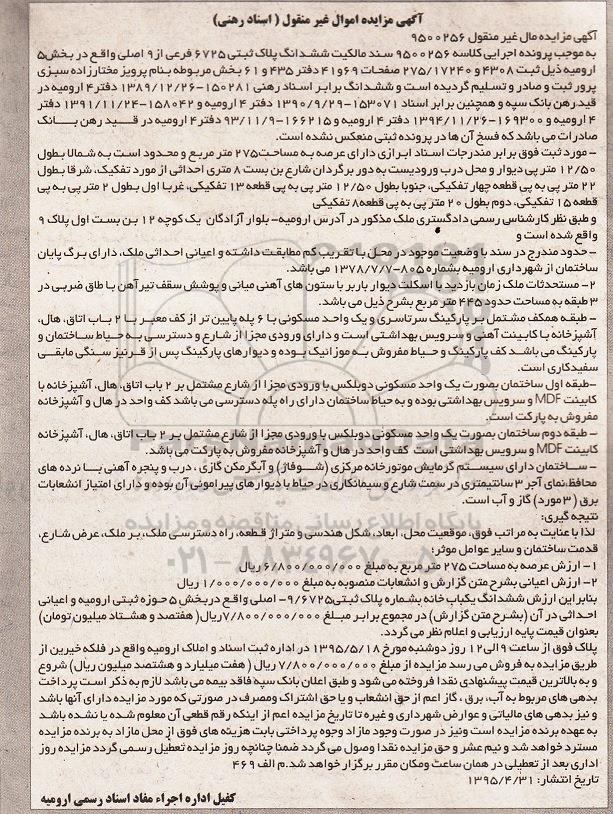 آگهی مزایده اموال غیر منقول ( اسناد رهنی)
آگهی مزایده مال غیر منقول ۹۵۰۰۲۵۶
به موجب پرونده اجرایی کلاسه ۹۵۰۰۲۵۶ سند مالکیت ششدانگ پلاک ثبتی ۶۷۲۵ فرعی از ۹ اصلی واقع در بخش۵
ارومیه ذیل ثبت ۴۳۰۸ و ۲۷۵/۱۷۲۴۰ صفحات ۶۹و۴۱ دفتر ۴۳۵ و ۶۱ بخش مربوطه بنام پرویز مختارزاده سبزی
پرور ثبت و صادر و تسلیم گردیده است و ششدانگ برابر اسناد رهنی ۱۵۰۲۸۱-۱۳۸۹/۱۲/۲۶ دفتر۴ ارومیه در
قید رهن بانک سپه و همچنین برابر اسناد ۱۵۳۰۷۱-۱۳۹۰/۹/۲۹ دفتر ۴ ارومیه و ۱۵۸۰۴۲-۱۳۹۱/۱۱/۲۴ دفتر
۴ ارومیه و ۱۶۹۳۰۰-۱۳۹۴/۱۱/۲۶ دفتر ۴ ارومیه و ۱۶۶۲۱۵-۹۳/۱۱/۹ دفتر۴ ارومیه در قید رهن بانک
صادرات می باشد که فسخ آن ها در پرونده ثبتی منعکس نشده است.
- مورد ثبت فوق برابر مندرجات اسناد ابرازی دارای عرصه به مساحت۲۷۵ متر مربع و محدود است به شمالا بطول
۱۲/۵۰ متر پی دیوار و محل درب ورودیست به دور برگردان شارع بن بست ۸ متری احداثی از مورد تفکیک، شرقا بطول
۲۲ متر پی به پی قطعه چهار تفکیکی، جنوبا بطول ۱۲/۵۰ متر پی به پی قطعه ۱۳ تفکیکی، غربا اول بطول ۲ متر پی به پی
قطعه ۱۵ تفکیکی، دوم بطول ۲۰ متر پی به پی قطعه۸ تفکیکی
و طبق نظر کارشناس رسمی دادگستری ملک مذکور در آدرس ارومیه- بلوار آزادگان یک کوچه ۱۲ بن بست اول پلاک ۹
واقع شده است و
- حدود مندرج در سند با وضعیت موجود در محل با تقریب کم مطابقت داشته و اعیانی احداثی ملک، دارای برگ پایان
ساختمان از شهرداری ارومیه بشماره ۸۰۵-۱۳۷۸/۷/۷ می باشد.
۲- مستحدثات ملک زمان بازدید با اسکلت دیوار باربر با ستون های آهنی میانی و پوشش سقف تیرآهن با طاق ضربی در
۳ طبقه به مساحت حدود۴۴۵ متر مربع بشرح ذیل می باشد.
- طبقه همکف مشتمل بر پارکینگ سرتاسری و یک واحد مسکونی با ۶ پله پایین تر از کف معبر با ۲ باب اتاق، هال،
آشپزخانه با کابینت آهنی و سرویس بهداشتی است و دارای ورودی مجزا از شارع و دسترسی به حیاط ساختمان و
پارکینگ می باشد کف پارکینگ و حیاط مفروش به موزائیک بوده و دیوارهای پارکینگ پس از قرنیز سنگی مابقی
سفیدکاری است.
-طبقه اول ساختمان بصورت یک واحد مسکونی دوبلکس با ورودی مجزا از شارع مشتمل بر ۲ باب اتاق، هال، آشپزخانه با
کابینت MDF و سرویس بهداشتی بوده و به حیاط ساختمان دارای راه پله دسترسی می باشد کف واحد در هال و آشپزخانه
مفروش به پارکت است.
- طبقه دوم ساختمان بصورت یک واحد مسکونی دوبلکس با ورودی مجزا از شارع مشتمل بر ۲ باب اتاق، هال، آشپزخانه
کابینت MDF و سرویس بهداشتی است کف واحد در هال و آشپزخانه مفروش به پارکت می باشد.
- ساختمان دارای سیستم گرمایش موتورخانه مرکزی (شوفاژ) و آبگرمکن گازی ، درب و پنجره آهنی با نرده های
محافظ،نمای آجر ۳ سانتیمتری در سمت شارع و سیمانکاری در حیاط با دیوارهای پیرامونی آن بوده و دارای امتیاز انشعابات
برق (۳ مورد) گاز و آب است.
نتیجه گیری:
لذا با عنایت به مراتب فوق، موقعیت محل، ابعاد، شکل هندسی و متراژ قطعه، راه دسترسی ملک، بر ملک، عرض شارع،
قدمت ساختمان و سایر عوامل موثر؛
۱- ارزش عرصه به مساحت ۲۷۵ متر مربع به مبلغ ۶/۸۰۰/۰۰۰/۰۰۰ ریال
۲- ارزش اعیانی بشرح متن گزارش و انشعابات منصوبه به مبلغ ۱/۰۰۰/۰۰۰/۰۰۰ ریال
بنابراین ارزش ششدانگ یکباب خانه بشماره پلاک ثبتی۹/۶۷۲۵- اصلی واقع دربخش ۵ حوزه ثبتی ارومیه و اعیانی
احداثی در آن (بشرح متن گزارش) در مجموع برابر مبلغ ۷/۸۰۰/۰۰۰/۰۰۰ریال( هفتصد و هشتاد میلیون تومان)
بعنوان قیمت پایه ارزیابی و اعلام نظر می گردد.
پلاک فوق از ساعت ۹ الی۱۲ روز دوشنبه مورخ ۱۳۹۵/۵/۱۸ در اداره ثبت اسناد و املاک ارومیه واقع در فلکه خیرین از
طریق مزایده به فروش می رسد مزایده از مبلغ ۷/۸۰۰/۰۰۰/۰۰۰ ریال ( هفت میلیارد و هشتصد میلیون ریال) شروع
و به بالاترین قیمت پیشنهادی نقدا فروخته می شود و طبق اعلان بانک سپه فاقد بیمه می باشد لازم به ذکر است پرداخت
بدهی های مربوط به آب، برق ، گاز اعم از حق انشعاب و یا حق اشتراک ومصرف در صورتی که مورد مزایده دارای آنها باشد
و نیز بدهی های مالیاتی و عوارض شهرداری و غیره تا تاریخ مزایده اعم از اینکه رقم قطعی آن معلوم شده یا نشده باشد
به عهده برنده مزایده است ونیز در صورت وجود مازاد وجوه پرداختی بابت هزینه های فوق از محل مازاد به برنده مزایده
مسترد خواهد شد و نیم عشر و حق مزایده نقدا وصول می گردد ضمنا چنانچه روز مزایده تعطیل رسمی گردد مزایده روز
اداری بعد از تعطیلی در همان ساعت ومکان مقرر برگزار خواهد شد.م الف ۴۶۹
تاریخ انتشار: ۱۳۹۵/۴/۳۱
کفیل اداره اجراء مفاد اسناد رسمی ارومیه
پایگاه اطلاع رسانی مناقصه و مزایده
۰۲۱-۸۸۳۴۹۶۷۰-۵